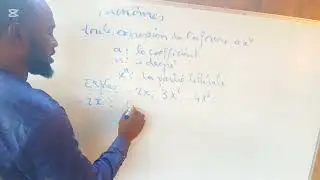 CapCut
monômes
toute expression de la forme axⁿ
a : le coefficient
n : le degré
xⁿ : la partie littérale
Exple : 2x ; 3x² ; 4x³
2x :